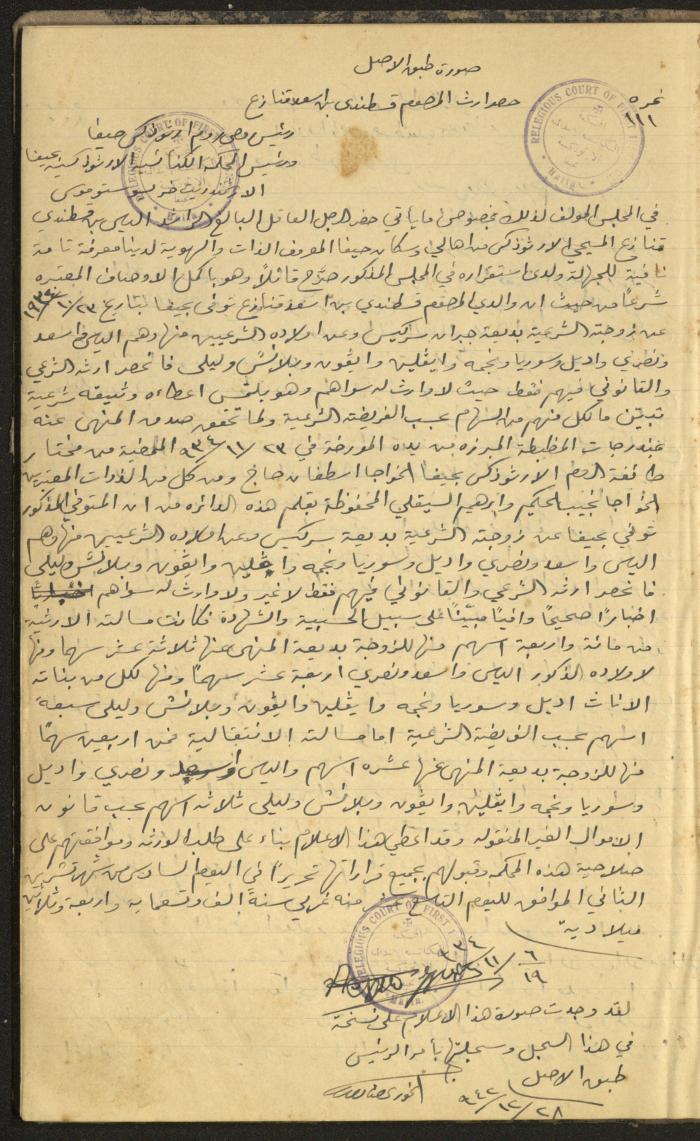 صورة طبق الاصل
نمره ١١١
حصر ارث المرحوم قسطندي بن اسعد قنازع
RELEGIOUS COURT OF FIRST
Haifa
رئيس روم ارثوذكس حيفا
ورئيس المحكمة الكنائسية الارثوذكسية بحيفا
الارشمندريت
في المجلس المؤلف لذلك بخصوص ما يأتي حضر الرجل العاقل البالغ الراشد الياس بن قسطندي
قنازع المسيحي الارثوذكسي من اهالي وسكان حيفا المعروف الذات والهوية لدينا معرفة تامة
نافية للجهالة ولدى استقراره في المجلس المذكور صرّح قائلاً وهو باكمل الاوصاف المعتبره
شرعاً من حيث ان والدي المرحوم قسطندي بن اسعد قنازع توفي بحيفا بتاريخ
عن زوجته الشرعية بديعة جبران سركيس وعن اولاده الشرعيين منها وهم الياس واسعد
ونصري واديل وسوريا ونجمه وايفلين وايفون وبلانش وليلى فانحصر ارثه الشرعي
والقانوني فيهم فقط حيث لا وارث له سواهم وهو يلتمس اعطاءه وثيقه شرعية
تبين ما لكل منهم من السهام بحسب الفريضة الشرعية ولما تحقق صدق المنهى عنه
بمندرجات المظبطة المبرزه من يده المورخة في ٢٣/١١/٩٣٤ الممضية من مختار
طائفة الروم الارثوذكس بحيفا الخواجا اسطفان حاج ومن كل من الذوات المعتبرين
الخواجا نجيب الحكيم وابرهيم السيقلي المحفوظة بقلم هذه الدائره من ان المتوفي المذكور
توفي بحيفا عن زوجته الشرعية بديعة سركيس وعن اولاده الشرعيين منها وهم
الياس واسعد ونصري واديل وسوريا ونجمه وايفلين وايفون وبلانش وليلى
فانحصر ارثه الشرعي والقانوني فيهم فقط لا غير ولا وارث له سواهم
اخباراً صحيحاً وافياً مبيّناً على سبيل الحسبية والشهادة فكانت مسالته الارثية
من مائة واربعة اسهم منها للزوجة بديعة المنهى عنها ثلاثة عشر سهما ومنها
لاولاده الذكور الياس واسعد ونصري اربعة عشر سهماً ومنها لكل من بناته
الاناث اديل وسوريا ونجمه وايفلين وايفون وبلانش وليلى سبعة
اسهم بحسب الفريضة الشرعية اما مسالته الانتقالية فمن اربعين سهماً
منها للزوجة بديعة المنهى عنها عشره اسهم والياس واسعد ونصري واديل
وسوريا ونجمه وايفلين وايفون وبلانش وليلى ثلاثة اسهم بحسب قانون
الاموال الغير المنقوله وقد اعطي هذا الاعلام بناء على طلب الورثه وموافقتهم على
صلاحية هذه المحكمه وقبولهم بجميع قراراتها تحريراً في اليوم السادس من شهر تشرين
الثاني الموافق لليوم التاسع عشر منه غربي سنة الف وتسعمايه واربعة وثلاثين
ميلادية
RELEGIOUS COURT OF FIRST
Haifa
٦/١٩ ١١ ٩٣٤
لقد وجدت صورة هذا الاعلام على نسخة
في هذا السجل وسجلتها بأمر الرئيس
طبق الاصل
٢٨/١٢/٩٤٢
الخوري